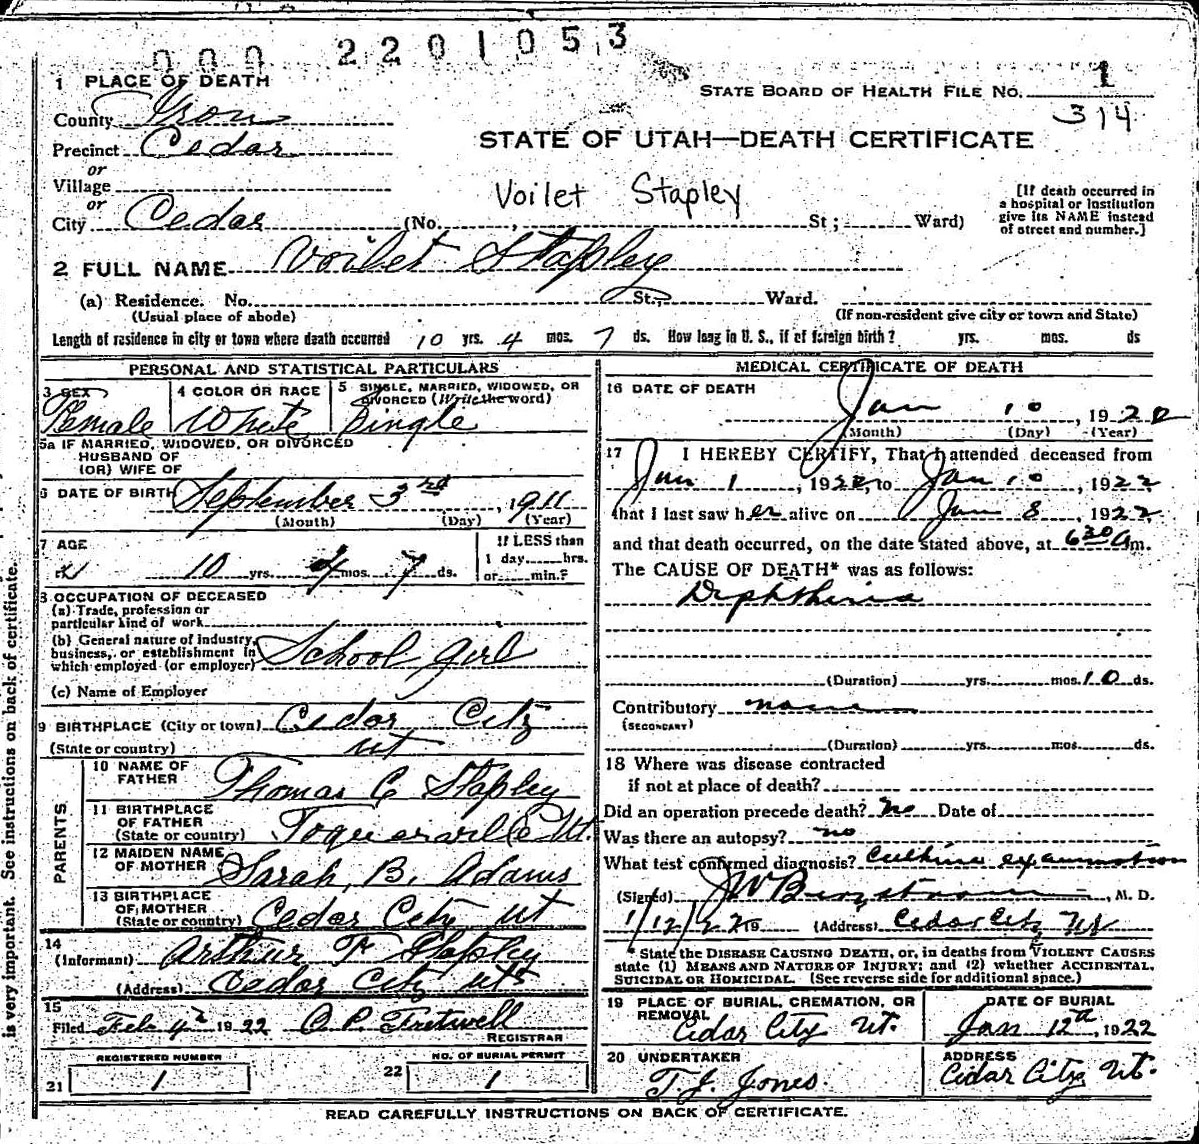 000 2201053
1 PLACE OF DEATH
STATE BOARD OF HEALTH FILE NO. 1
314
County Iron
STATE OF UTAH—DEATH CERTIFICATE
Precinct Cedar
or
Village
or
Voilet Stapley
[If death occurred in a hospital or institution give its NAME instead of street and number.]
City Cedar (No. St; Ward)
2 FULL NAME Voilet Stapley
(a) Residence. No. St., Ward.
(Usual place of abode) (If non-resident give city or town and State)
Length of residence in city or town where death occurred 10 yrs. 4 mos. 7 ds. How long in U. S., if of foreign birth? yrs. mos. ds
PERSONAL AND STATISTICAL PARTICULARS
3 SEX Female
4 COLOR OR RACE White
5 SINGLE, MARRIED, WIDOWED, OR DIVORCED (Write the word) Single
5a IF MARRIED, WIDOWED, OR DIVORCED
HUSBAND OF
(OR) WIFE OF
6 DATE OF BIRTH September 3rd, 1911
(Month) (Day) (Year)
7 AGE
10 yrs. 4 mos. 7 ds.
If LESS than 1 day hrs. or min.?
8. OCCUPATION OF DECEASED
(a) Trade, profession or particular kind of work
(b) General nature of industry, business, or establishment in which employed (or employer) School girl
(c) Name of Employer
9 BIRTHPLACE (City or town) Cedar City
(State or country) Ut
PARENTS
10 NAME OF FATHER Thomas C Stapley
11 BIRTHPLACE OF FATHER (State or country) Toquerville Ut.
12 MAIDEN NAME OF MOTHER Sarah. B. Adams
13 BIRTHPLACE OF MOTHER (State or country) Cedar City Ut
14
(Informant) Arthur F Stapley
(Address) Cedar City Ut
15
Filed Feb 4th 1922 REGISTRAR
21 REGISTERED NUMBER 1
22 NO. OF BURIAL PERMIT 1
MEDICAL CERTIFICATE OF DEATH
16 DATE OF DEATH
Jan 10, 1922
(Month) (Day) (Year)
17 I HEREBY CERTIFY, That I attended deceased from
Jan 1, 1922, to Jan 10, 1922
that I last saw her alive on Jan 8, 1922
and that death occurred, on the date stated above, at 630 Am.
The CAUSE OF DEATH* was as follows:
Diphtheria
(Duration) yrs. mos. 10 ds.
Contributory none
(SECONDARY)
(Duration) yrs. mos. ds.
18 Where was disease contracted
if not at place of death?
Did an operation precede death? No Date of
Was there an autopsy? no
What test confirmed diagnosis? Culture examination
(Signed) , M. D.
1/12/22 19 (Address) Cedar City Ut
* State the DISEASE CAUSING DEATH, or, in deaths from VIOLENT CAUSES
state (1) MEANS AND NATURE OF INJURY; and (2) whether ACCIDENTAL,
SUICIDAL OR HOMICIDAL. (See reverse side for additional space.)
19 PLACE OF BURIAL, CREMATION, OR REMOVAL Cedar City Ut.
DATE OF BURIAL Jan 12th, 1922
20 UNDERTAKER T. J. Jones.
ADDRESS Cedar City Ut.
READ CAREFULLY INSTRUCTIONS ON BACK OF CERTIFICATE.
is very important. See instructions on back of certificate.